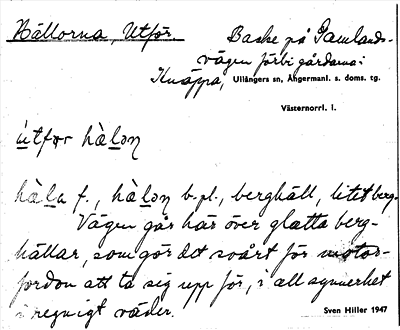 Hällorna, Utför.
Backe på Samlands-
vägen förbi gårdarna i
Knäppa, Ullångers sn, Ångermanl. s. doms. tg.
Västernorrl. l.
ùtfor hàlən
hàla f., hàlən b.pl., berghäll, litet berg.
Vägen går här över glatta berg-
hällar, som gör det svårt för motor-
fordon att ta sig upp för, i all synnerhet
i regnigt väder.
Sven Hiller 1947